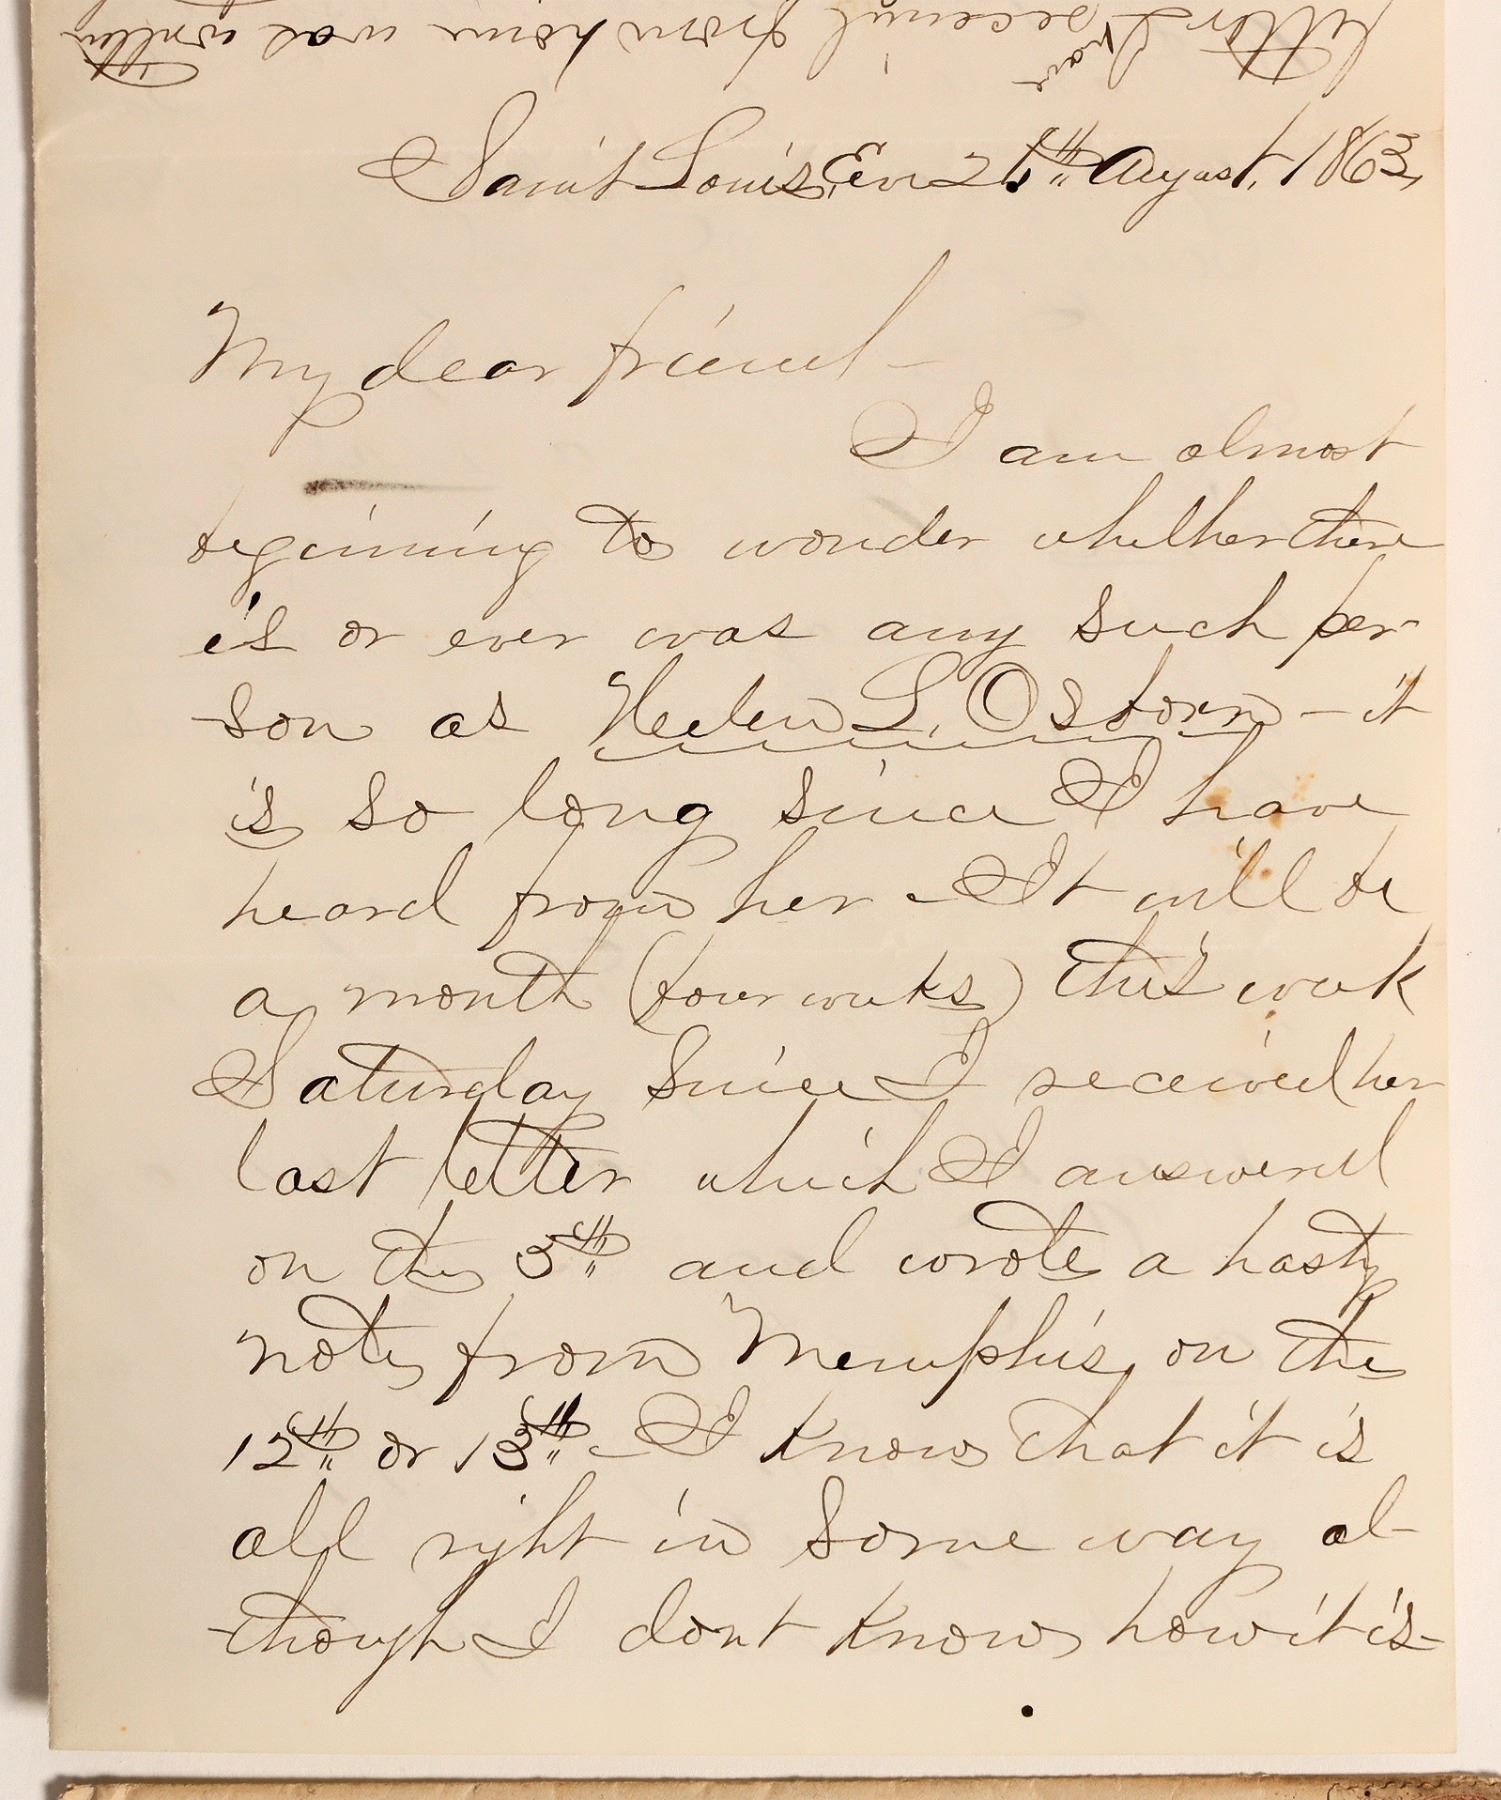 letter I have received from home was written
Saint Louis, Eve 25th August, 1863,
My dear friend -
I am almost
beginning to wonder whether there
is or ever was any such per-
son as Helen L. Osborn - it
is so long since I have
heard from her - It will be
a month (four weeks) this week
Saturday since I received her
last letter which I answered
on the 5th and wrote a hasty
note from Memphis, on the
12th or 13th - I know that it is
all right in some way al-
though I dont know how it is -